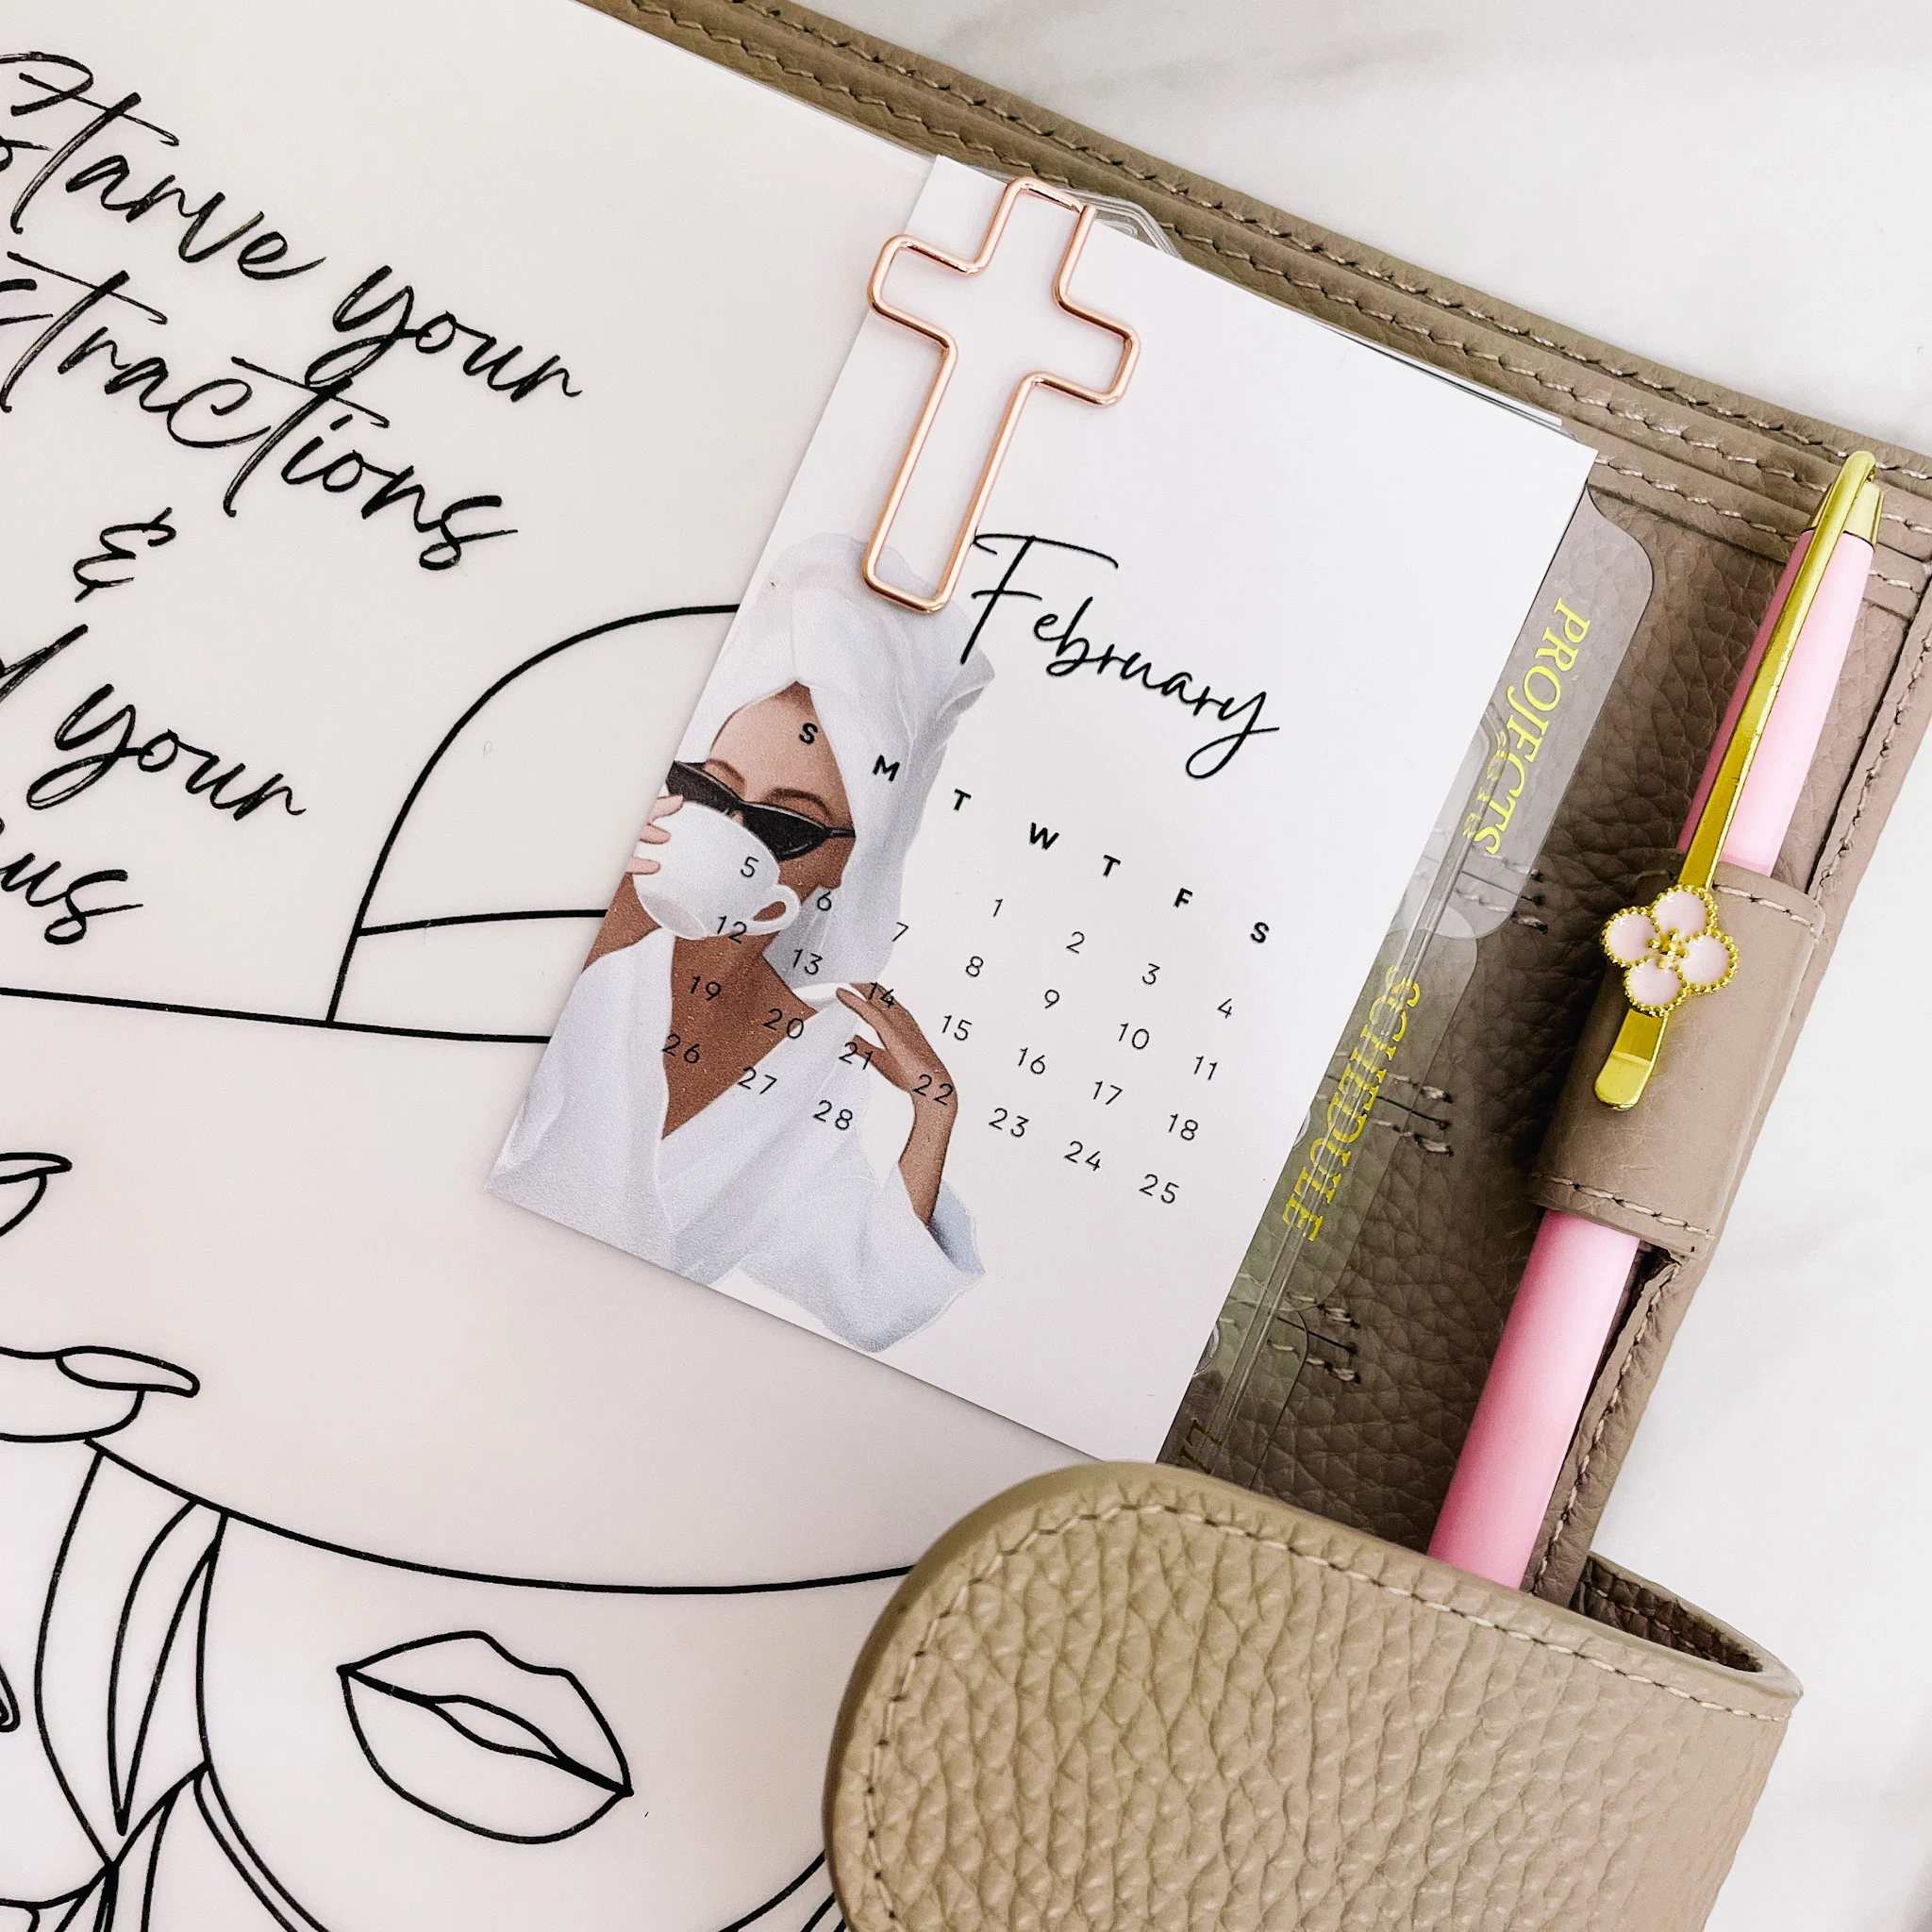 Starve your
stractions
&
your
us
February
S M T W T F S
1 2 3 4
5 6 7 8 9 10 11
12 13 14 15 16 17 18
19 20 21 22 23 24 25
26 27 28
PROJECTS
SCHEDULE